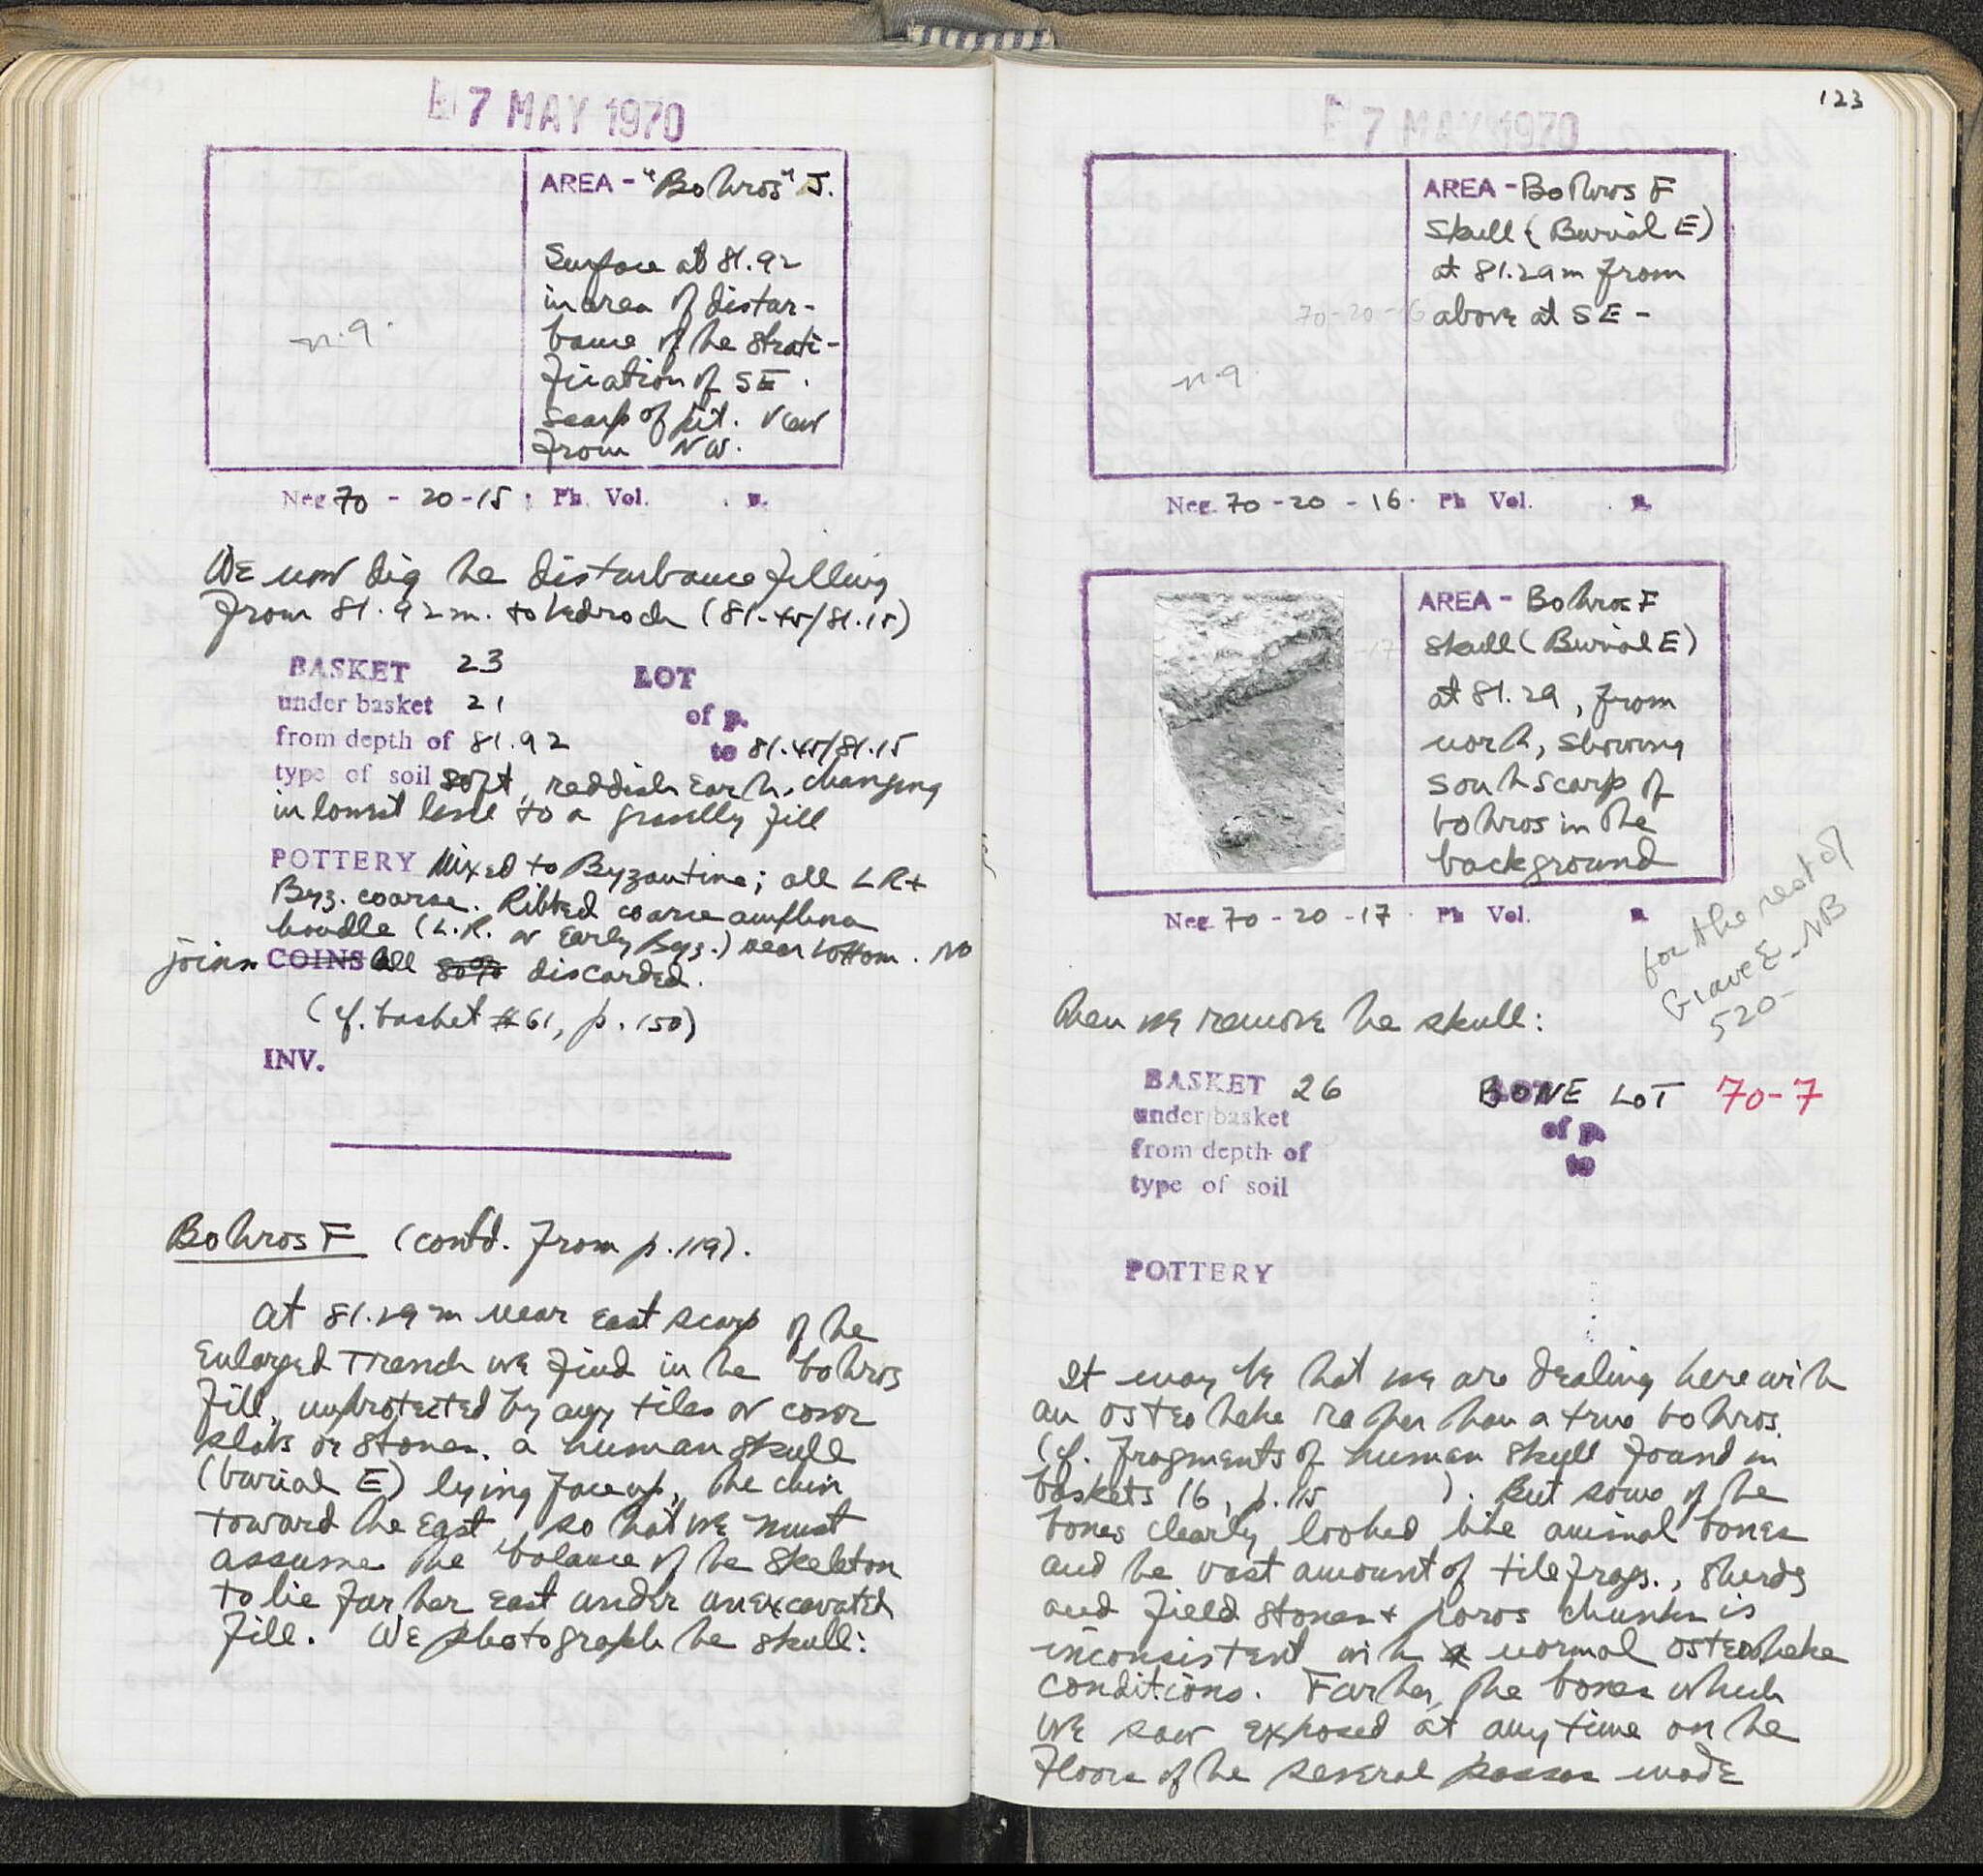 7 MAY 1970
AREA - "Bothros" J.
Surface at 81.92
in area of distur-
bance of the strati-
fication of SE
scarp of pit. View
from NW.
n.g.
Neg. 70 - 20 - 15 ; Ph. Vol. . p.
We now dig the disturbance filling
from 81.92m. to bedrock (81.45/81.15)
BASKET 23 LOT
under basket 21 of p.
from depth of 81.92 to 81.45/81.15
type of soil soft, reddish earth, changing
in lowest level to a gravelly fill
POTTERY Mixed to Byzantine; all LR +
Byz. coarse. Ribbed coarse amphora
handle (L.R. or Early Byz.) near bottom. No
joins COINS All 80% discarded.
(cf. basket #61, p. 150)
INV.
Bothros F (contd. from p. 119).
At 81.29 m near East scarp of the
Enlarged Trench we find in the bothros
fill, unprotected by any tiles or cover
slabs or stones, a human skull
(burial E) lying face up, the chin
toward the East, so that we must
assume the balance of the skeleton
to lie farther east under unexcavated
fill. We photograph the skull:
123
7 MAY 1970
AREA - Bothros F
Skull (Burial E)
at 81.29m from
70-20-16 above at SE -
n.g.
Neg. 70 - 20 - 16 . Ph. Vol. . p.
AREA - Bothros F
-17 Skull (Burial E)
at 81.29, from
north, showing
south scarp of
bothros in the
background
Neg. 70 - 20 - 17 . Ph. Vol. p.
for the rest of
Grave E, NB
520-
Then we remove the skull:
BASKET 26 BONE LOT 70-7
under basket of p.
from depth of to
type of soil
POTTERY
It may be that we are dealing here with
an osteotheke rather than a true bothros.
(cf. fragments of human skull found in
baskets 16, p. 115 ). But some of the
bones clearly looked like animal bones
and the vast amount of tile frags., sherds
and field stones + poros chunks is
inconsistent with a normal osteotheke
conditions. Farther, the bones which
we saw exposed at any time on the
floors of the several passes made